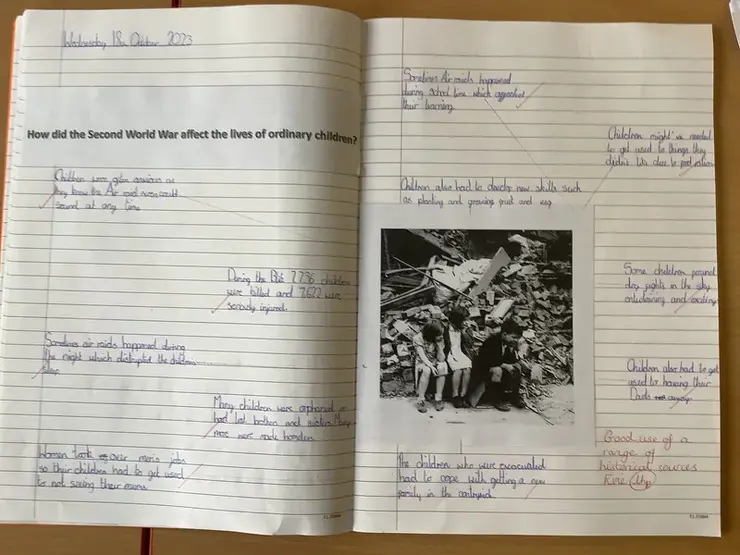 Wednesday 18th October 2023
How did the Second World War affect the lives of ordinary children?
Children were often anxious as
they knew the Air raid sirens could
sound at any time
During the Blitz 7,736 children
were killed and 7,622 were
seriously injured.
Sometimes air raids happened during
the night which disrupted the childrens
Many children were orphaned or
had lost brothers and sisters. Many
more were made homeless
Women took over men's jobs
so their children had to get used
to not seeing their mums
Sometimes Air raids happened
during school time which affected
their learning
Children might've needed
to get used to things they
didn't due to
Children also had to develop new skills such
as planting and growing fruit and veg
Some children found
dog fights in the sky
entertaining and exciting
Children also had to get
used to having their
Dads away
The children who were evacuated
had to cope with getting a new
family in the countryside
Good use of a
range of
historical sources